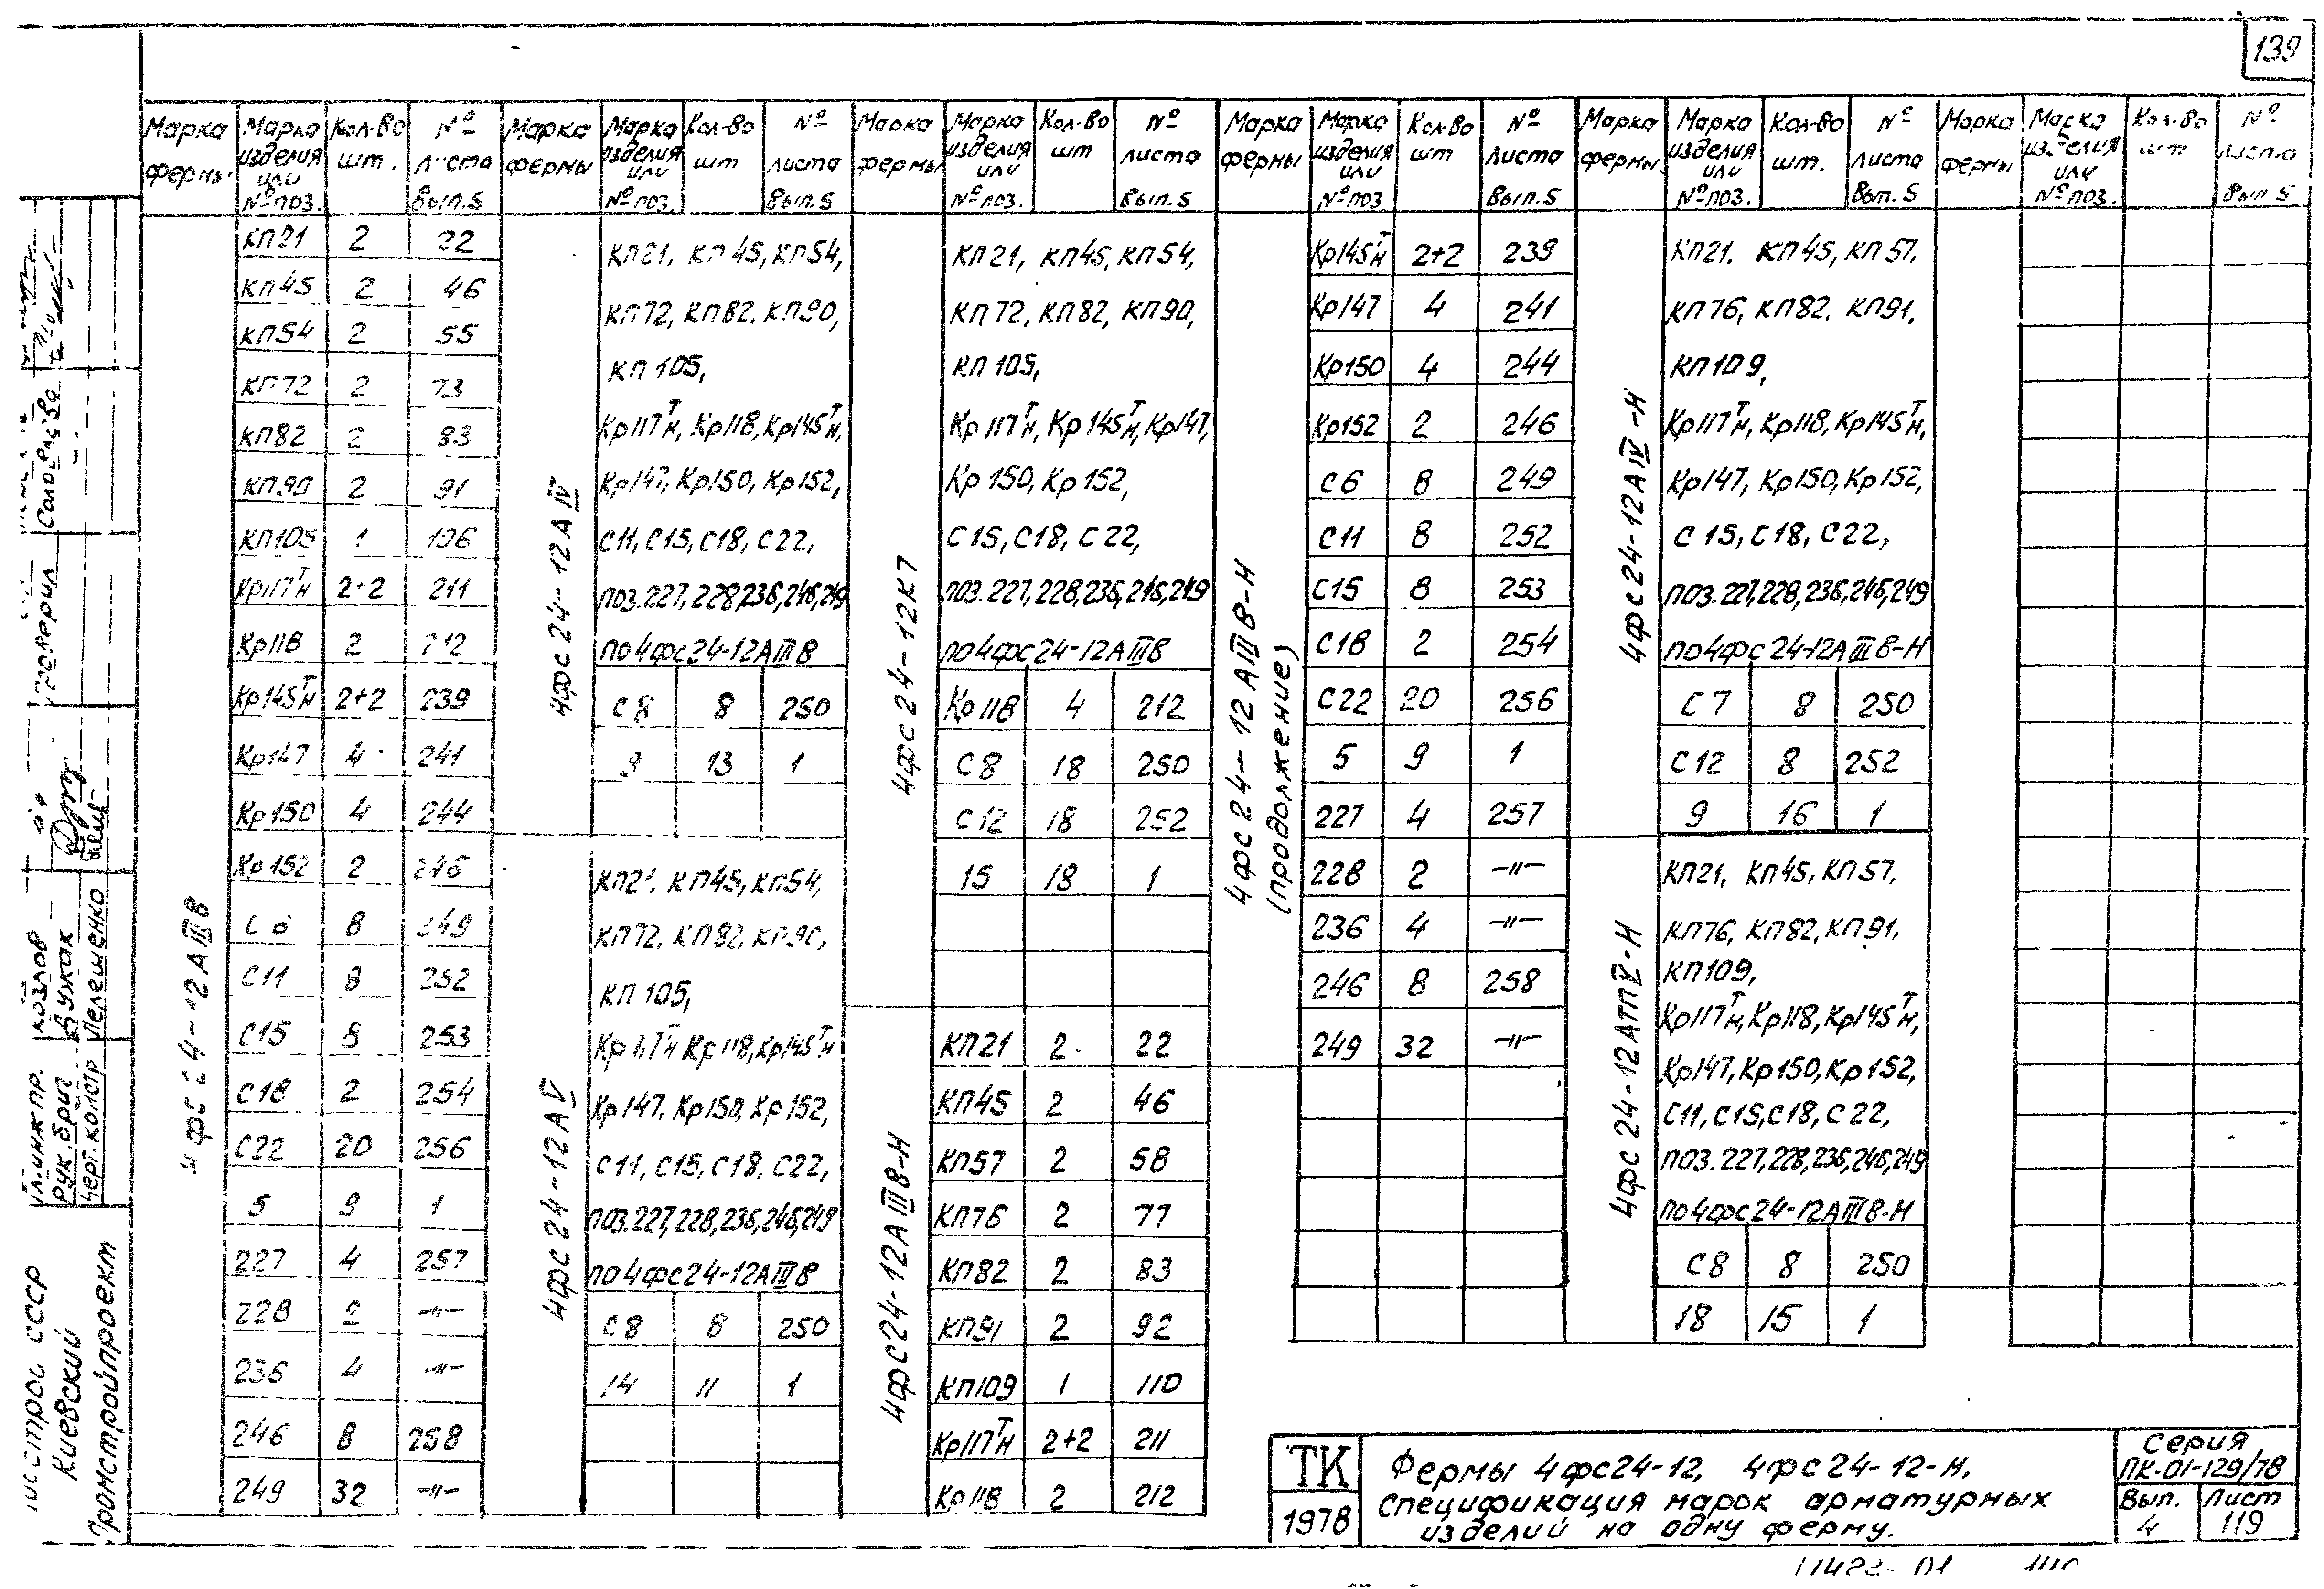 139
Марка фермы | Марка изделия или № поз. | Кол-во шт. | № листа Вып.5 | Марка фермы | Марка изделия или № поз. | Кол-во шт | № листа Вып.5 | Марка фермы | Марка изделия или № поз. | Кол-во шт | № листа Вып.5 | Марка фермы | Марка изделия или № поз. | Кол-во шт | № листа Вып.5 | Марка фермы | Марка изделия или № поз. | Кол-во шт. | № листа Вып.5 | Марка фермы | Марка изделия или № поз. | Кол-во шт | № листа Вып 5
4фс24-12АIIIВ
КП21 2 22
КП45 2 46
КП54 2 55
КП72 2 73
КП82 2 83
КП90 2 91
КП105 1 106
Кр117Т/Н 2+2 211
Кр118 2 212
Кр145Т/Н 2+2 239
Кр147 4 241
Кр150 4 244
Кр152 2 246
С6 8 249
С11 8 252
С15 8 253
С18 2 254
С22 20 256
5 9 1
227 4 257
228 2 —"—
236 4 —"—
246 8 258
249 32 —"—
4фс24-12АIV
КП21, КП45, КП54,
КП72, КП82, КП90,
КП105,
Кр117Т/Н, Кр118, Кр145Т/Н,
Кр147, Кр150, Кр152,
С11, С15, С18, С22,
поз.227, 228, 236, 246, 249
по 4фс24-12АIIIВ
С8 8 250
13 1
4фс24-12АV
КП21, КП45, КП54,
КП72, КП82, КП90,
КП105,
Кр117Т/Н Кр118, Кр145Т/Н
Кр147, Кр150, Кр152,
С11, С15, С18, С22,
поз.227, 228, 236, 246, 249
по 4фс24-12АIIIВ
С8 8 250
14 11 1
4фс24-12К7
КП21, КП45, КП54,
КП72, КП82, КП90,
КП105,
Кр117Т/Н, Кр145Т/Н, Кр147,
Кр150, Кр152,
С15, С18, С22,
поз.227, 228, 236, 246, 249
по 4фс24-12АIIIВ
Кр118 4 212
С8 18 250
С12 18 252
15 18 1
4фс24-12АIIIВ-Н
КП21 2 22
КП45 2 46
КП57 2 58
КП76 2 77
КП82 2 83
КП91 2 92
КП109 1 110
Кр117Т/Н 2+2 211
Кр118 2 212
4фс24-12АIIIВ-Н
(продолжение)
Кр145Т/Н 2+2 239
Кр147 4 241
Кр150 4 244
Кр152 2 246
С6 8 249
С11 8 252
С15 8 253
С18 2 254
С22 20 256
5 9 1
227 4 257
228 2 —"—
236 4 —"—
246 8 258
249 32 —"—
4фс24-12АIV-Н
КП21, КП45, КП57,
КП76, КП82, КП91,
КП109,
Кр117Т/Н, Кр118, Кр145Т/Н,
Кр147, Кр150, Кр152,
С15, С18, С22,
поз.227, 228, 236, 246, 249
по 4фс24-12АIIIВ-Н
С7 8 250
С12 8 252
9 16 1
4фс24-12АтпV-Н
КП21, КП45, КП57,
КП76, КП82, КП91,
КП109,
Кр117Т/Н, Кр118, Кр145Т/Н,
Кр147, Кр150, Кр152,
С11, С15, С18, С22,
поз.227, 228, 236, 246, 249
по 4фс24-12АIIIВ-Н
С8 8 250
18 15 1
Киевский
Рук. бриг
Черт. констр
Козлов
Лелешенко
ТК
1978
Фермы 4фс24-12, 4фс24-12-Н.
Спецификация марок арматурных
изделий на одну ферму.
Серия
ПК-01-129/78
Вып.
4
Лист
119